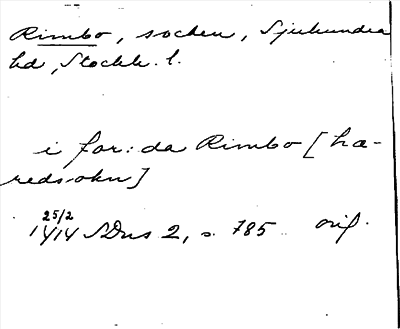 Rimbo, socken, Sjuhundra
hd, Stockh. l.
i för: da Rimbo [hæ-
redsokn]
25/2
1414 SDns 2, s. 785 orig.